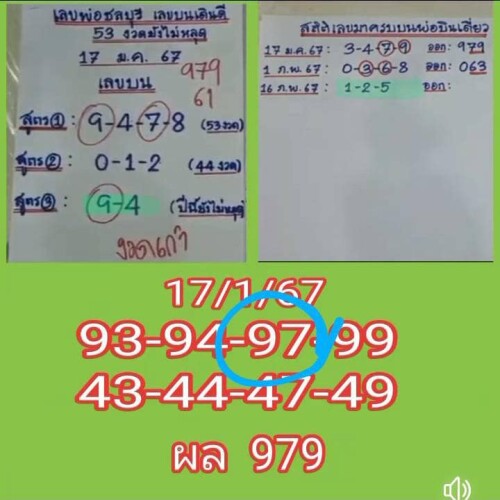 เลขพ่อชลบุรี เลขบนเดินดี
53 งวดยังไม่หลุด
17 ม.ค. 67
979
เลขบน
61
สูตร① : 9-4-7-8 (53งวด)
สูตร② : 0-1-2 (44งวด)
สูตร③ : 9-4 (ปีนี้ยังไม่หลุด)
งวดเก่า
สถิติเลขมาครบบนพ่อปิ่นเดี่ยว
17 ม.ค. 67: 3-4-7-9 ออก: 979
1 ก.พ. 67: 0-3-6-8 ออก: 063
16 ก.พ. 67: 1-2-5 ออก:
17/1/67
93-94-97-99
43-44-47-49
ผล 979